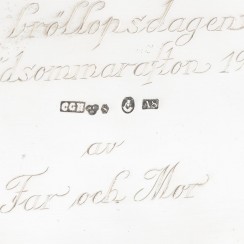 bröllopsdagen
dsommarafton 19
CGH AS
av
Far och Mor